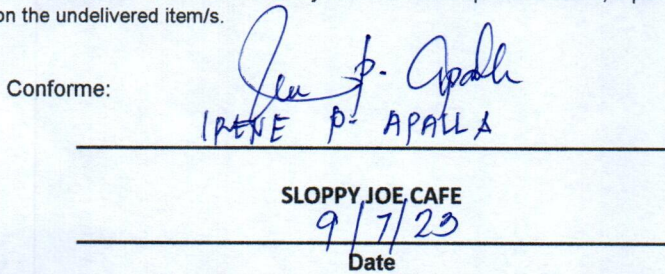 on the undelivered item/s.
Conforme:
IRENE P. APALLA
SLOPPY JOE CAFE
9/7/23
Date